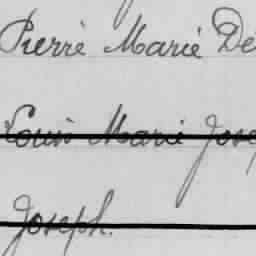 Pierré Marié De
Louis Marié Jose
Joseph.